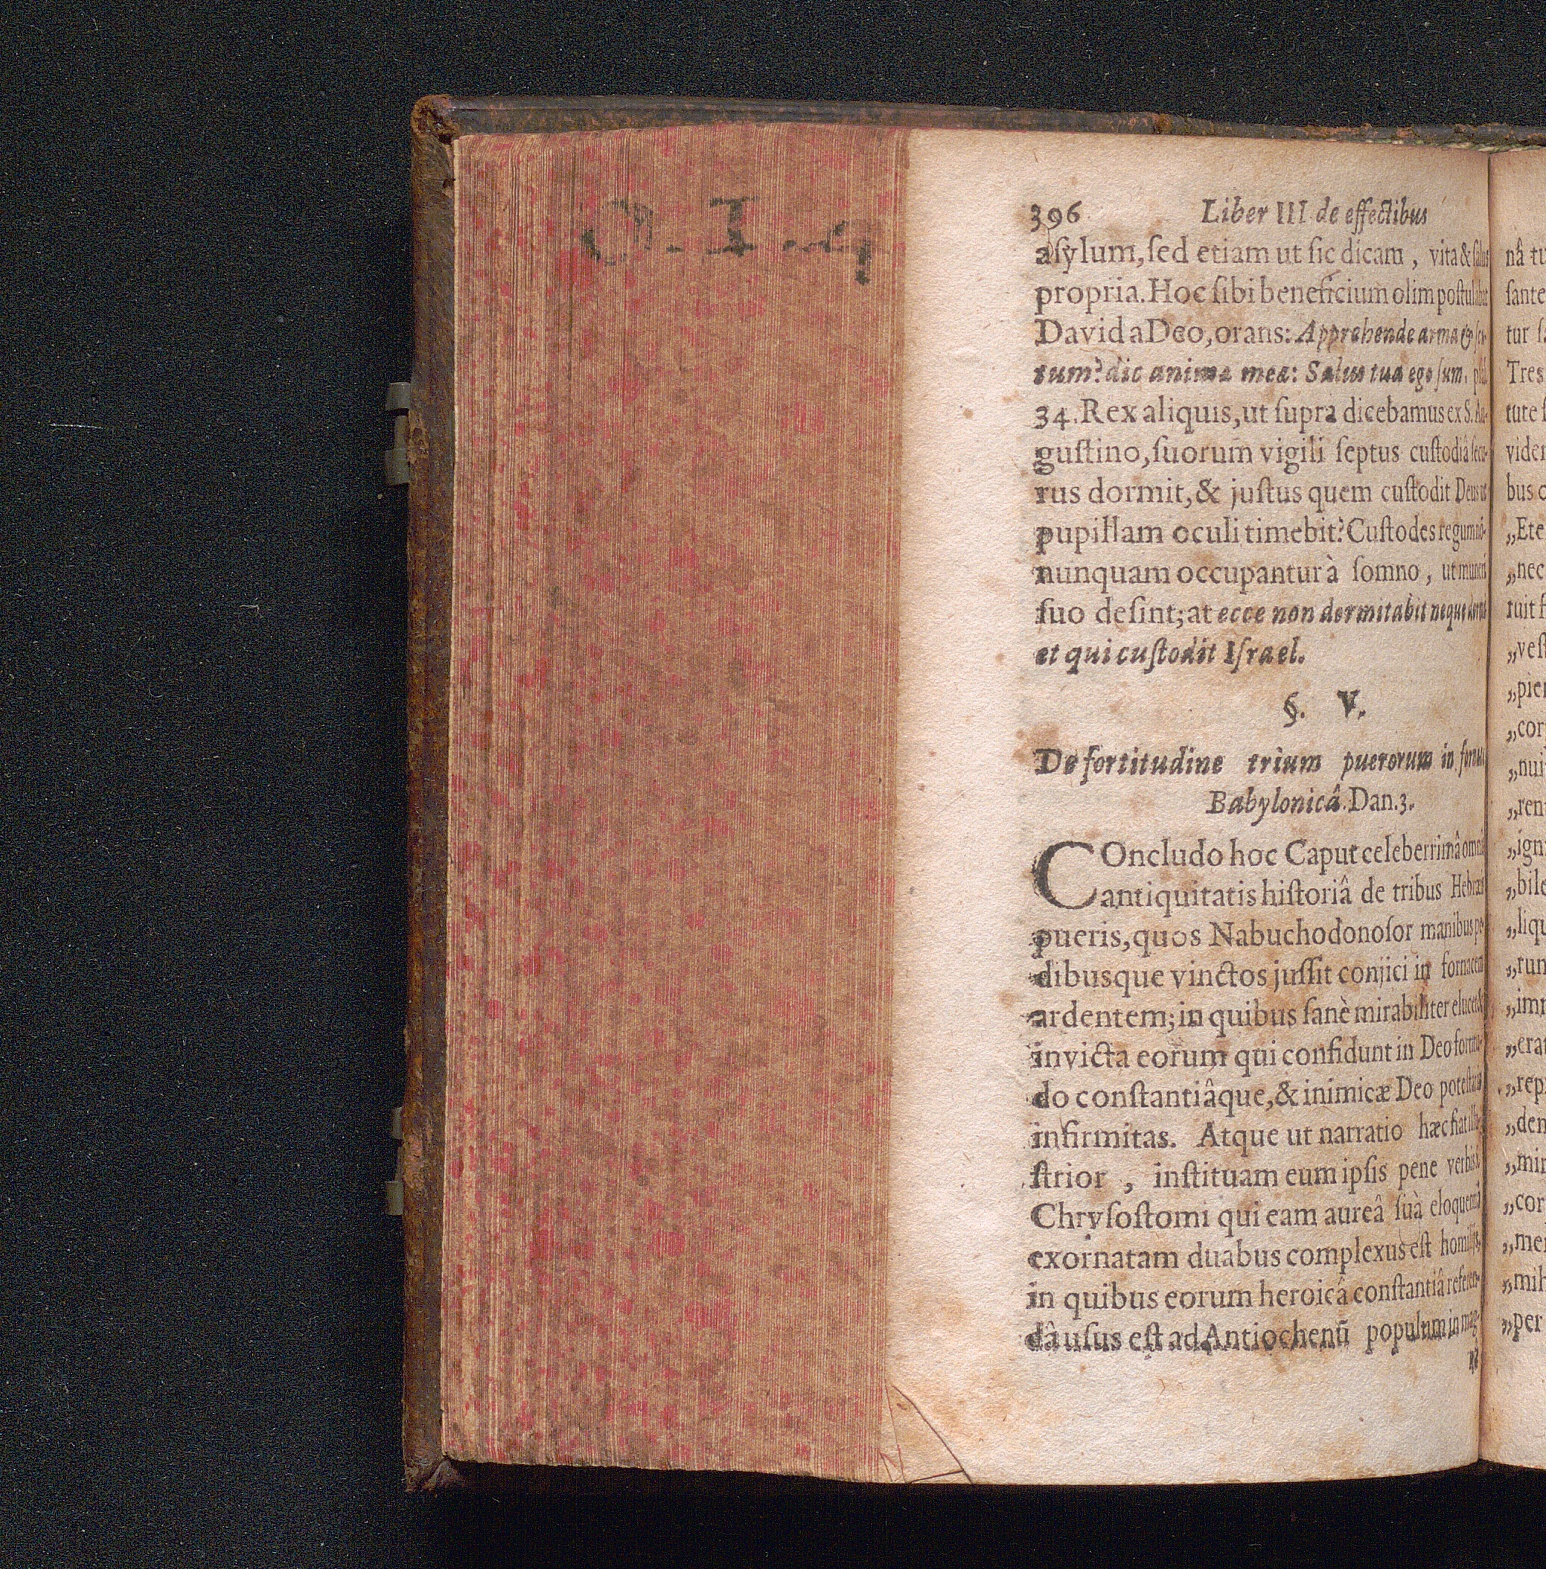 396 Liber III de effectibus
asylum, sed etiam ut sic dicam, vita & salus
propria. Hoc sibi beneficium olim postulabat
David a Deo, orans: Apprehende arma & scu-
tum? dic anima mea: Salus tua ego sum.
34. Rex aliquis, ut supra dicebamus ex S. Au-
gustino, suorum vigili septus custodiâ secu-
rus dormit, & justus quem custodit Deus ut
pupillam oculi timebit? Custodes regum nō-
nunquam occupantur à somno, ut muneri
suo desint; at ecce non dermitabit neque dormi
et qui custodit Israel.
§. V.
De fortitudine trium puerorum in
Babylonicâ. Dan. 3.
COncludo hoc Caput celeberrimâ omnis
antiquitatis historiâ de tribus Hebræis
pueris, quos Nabuchodonosor manibus pe-
dibusque vinctos jussit conjici in fornacem
ardentem; in quibus sanè mirabiliter elucet &
invicta eorum qui confidunt in Deo fortitu-
do constantiâque, & inimicæ Deo potestatis
infirmitas. Atque ut narratio hæc fiat illu-
strior, instituam eum ipsis pene verbis
Chrysostomi qui eam aureâ suà eloquentiâ
exornatam duabus complexus est
in quibus eorum heroicâ constantiâ referen-
dâ usus est ad Antiochenū populum in mag-
nâ
sante
tur
Tres
tute
bus
„nec
„per